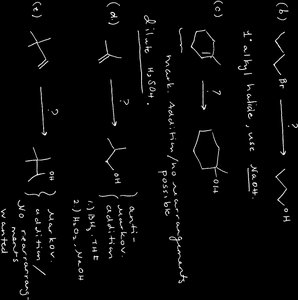 (b) Br ? OH
1° alkyl halide, use NaOH.
(c) ? OH
mark. addition/no rearrangements
possible
dilute H₂SO₄.
(d) ? OH
anti-
markov.
addition
1) BH₃·THF
2) H₂O₂, NaOH
(e) ? OH
Markov.
addition/
No rearrange
ments
wanted